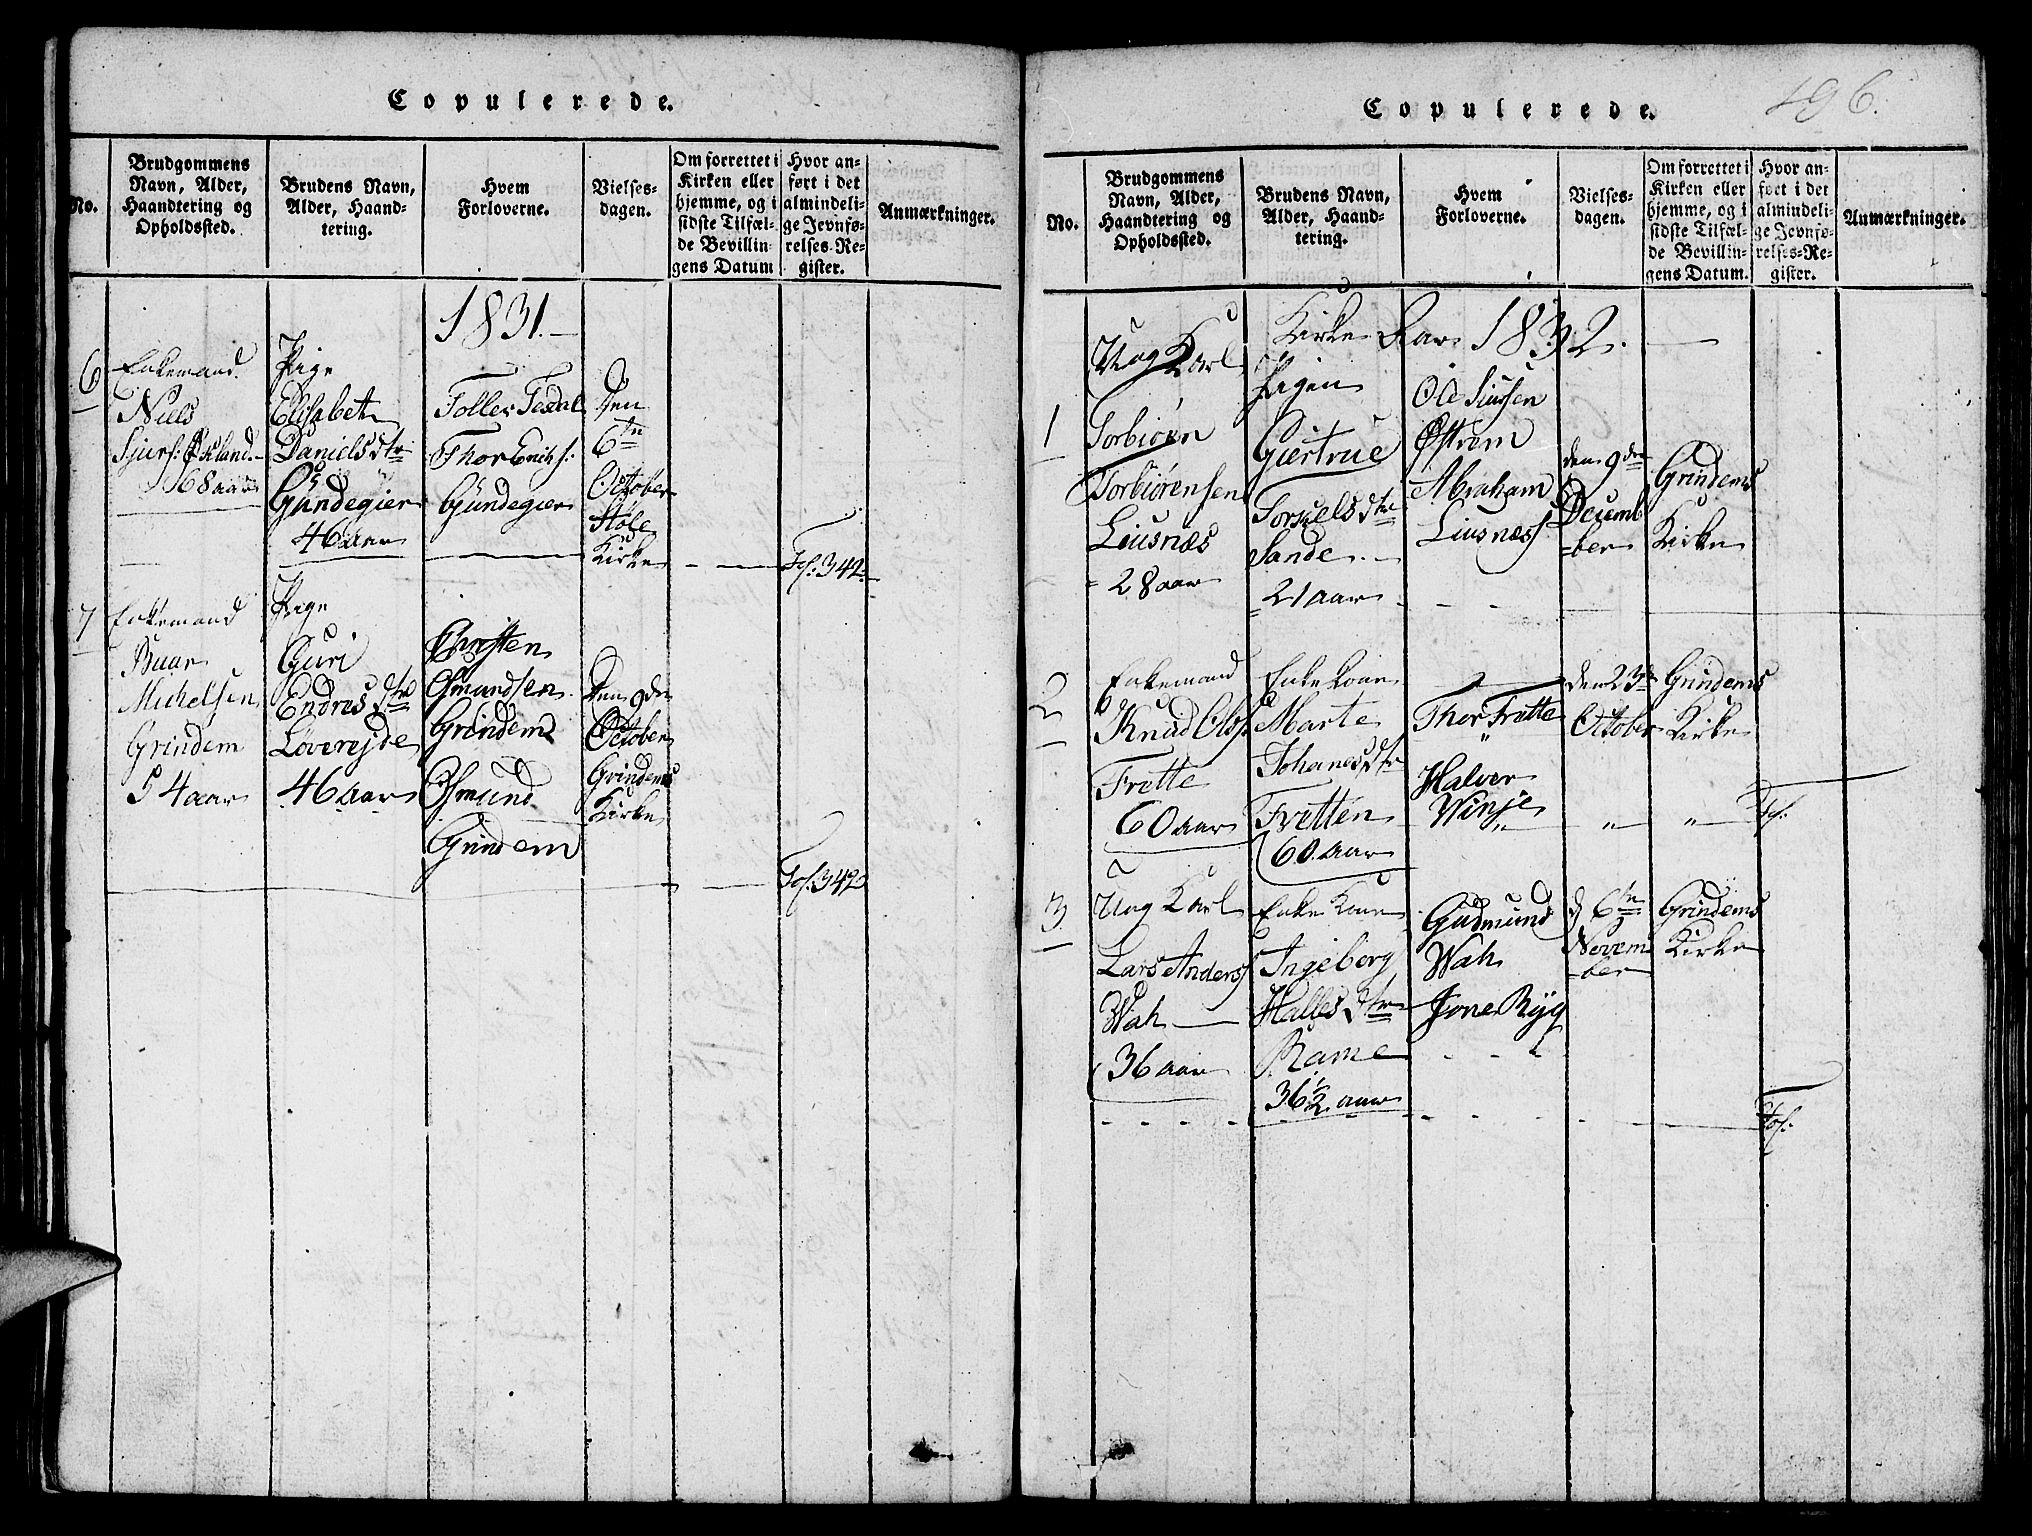 Copulerede.
No.
Brudgommens
Navn, Alder,
Haandtering og
Opholdssted.
Brudens Navn,
Alder, Haand-
tering.
Hvem
Forloverne.
Vielses-
dagen.
Om forrettet i
Kirken eller
hjemme, og i
sidste Tilfæl-
de Bevillin-
gens Datum
Hvor an-
ført i det
almindeli-
ge Jevnfø-
relses-Re-
gister.
Anmærkninger.
1831.
6
Enkemand
Niels
68 aar
Pige
Elisabet
Daniels dtr
Gundegier
46 aar
Toller Tesdal
Thor
Gundegier
Den
6te
October
Høle
Kirke
Fol. 342
7
Enkemand
Buar
Michelsen
Grindem
54 aar
Pige
Guri
Endres dtr
Løvereide
46 aar
Osmundsen
Grindem
Osmund
Grindem
Den 9de
October
Grindems
Kirke
Fol. 342
Copulerede.
196.
No.
Brudgommens
Navn, Alder,
Haandtering og
Opholdssted.
Brudens Navn,
Alder, Haand-
tering.
Hvem
Forloverne.
Vielses-
dagen.
Om forrettet i
Kirken eller
hjemme, og i
sidste Tilfæl-
de Bevillin-
gens Datum.
Hvor an-
ført i det
almindeli-
ge Jevnfø-
relses-Re-
gister.
Anmærkninger.
Kirke Aar 1832.
1
Ung Karl
Torbiørn
Torbiørensen
Liusnæs
28 aar
Pigen
Giertrue
Torkels dtr
Sande
21 aar
Ole
Østrem
Abraham
Liusnæs
den 9de
Decemb
ber
Grindems
Kirke
2
Enkemand
Knud Ols.
Frette
60 aar
Enke Kone
Marte
Johanes dtr
Fretten
60 aar
Thor Frette
Halver
Winje
den 23de
October
Grindems
Kirke
Fol.
3
Ung Karl
Lars Anders.
Wah
36 aar
Enke Kone
Ingeborg
Halles dtr
Rame
36 1/2 aar
Gudmund
Wah
Jone Ryg
d 6te
Novem
ber
Grindems
Kirke
Fol.